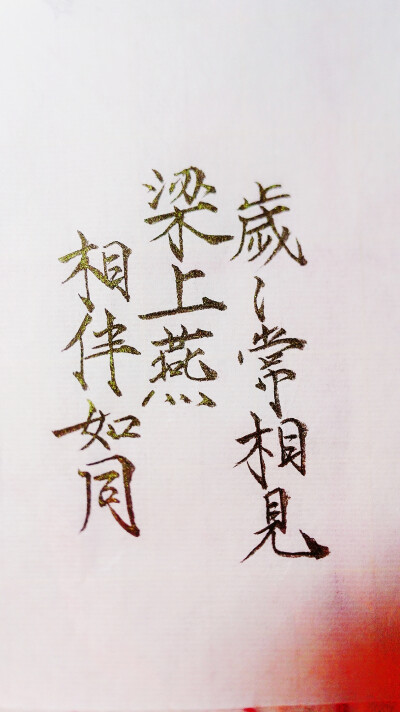 歲〻常相見
梁上燕
相伴如同